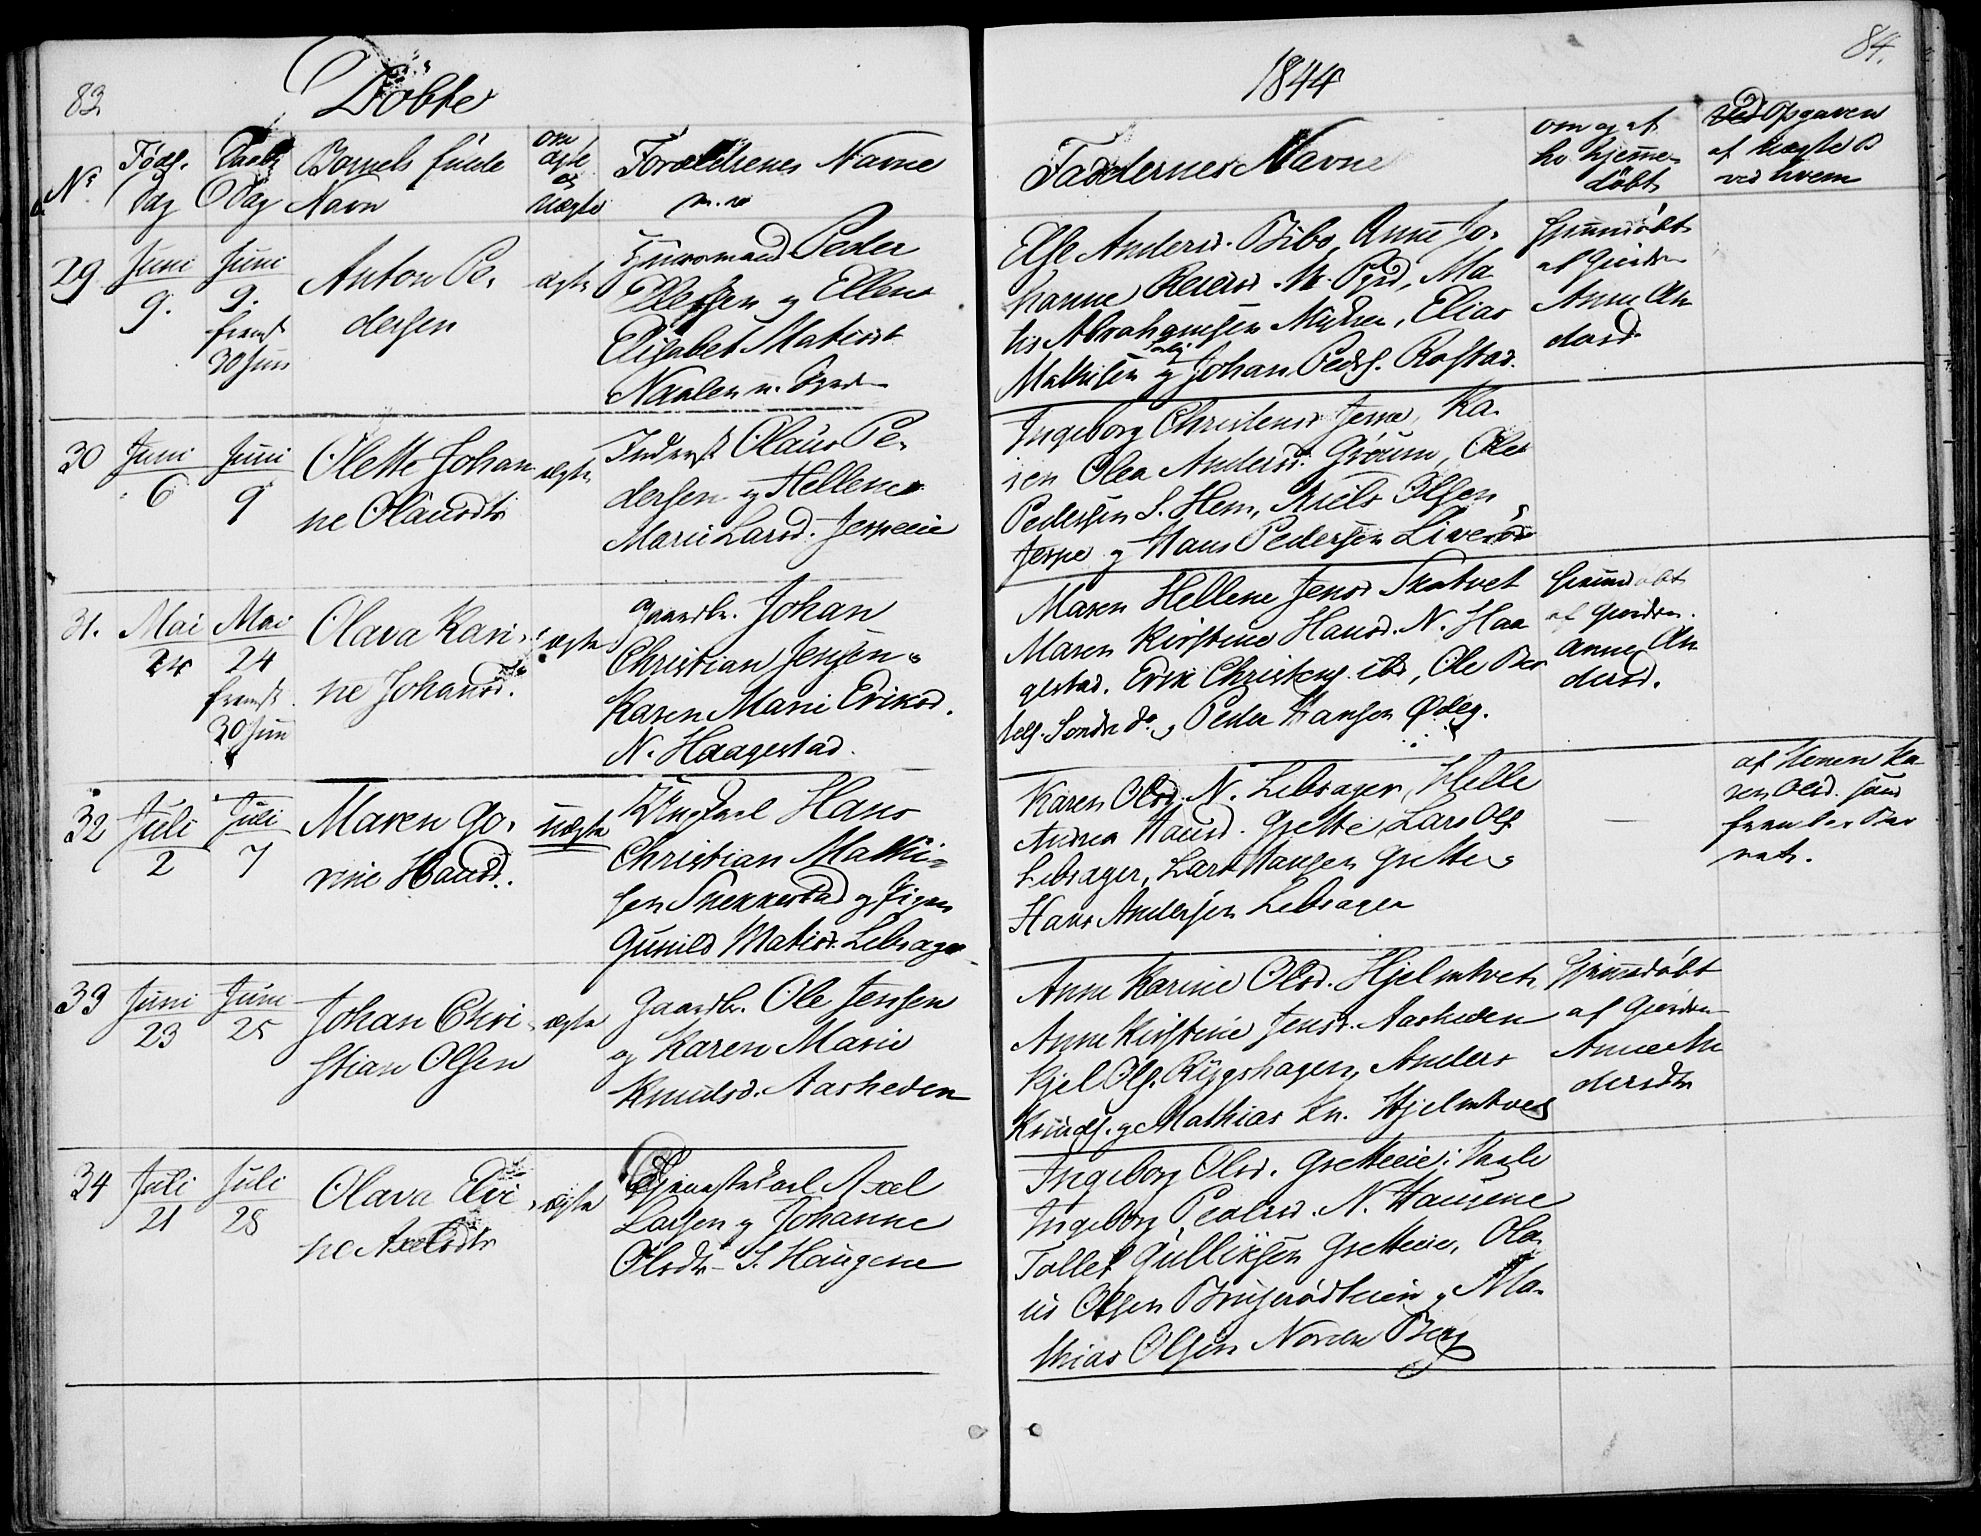 83
Döbte
1844
84.
No Föds. Dag
Daabs Dag
Barnets fulde Navn
om ægte og uægte
Forældrenes Navne m. v
Faddernes Navne
om og af hv hjemme döbt
Ved Opgaven af uægte B ved hvem
29
Juni 9.
Juni 9. fremst 30 Juni
Anton Pe-
dersen
ægte
Huusmand Peder
Ellefsen og Ellen
Elisabet Matisd
Naalen n.
Else Andersd. Bibo, Anne Jo-
hanne Reiersd. N.
this Abrahamsen Elias
Mathisen og Johan Peders. Rostad.
hjemmedöbt
af Gjordm
Anne An
dersd
30
Juni 6
Juni 9
Olette Johan
ne Olausdtr
ægte
Inderst Olaus Pe-
dersen og Hellene
Marie Larsd. Jerpeeie
Ingeborg Christensd Jerpe, Ka-
ren Olea Andersd. Gröum, Ole
Pedersen S. Hem, Niels Olsen
Jerpe og Hans Pedersen Liveröd
31.
Mai 24
Mai 24 fremst 30 Juni
Olava Kari-
ne Johansd.
ægte
Gaardbr. Johan
Christian Jensen og
Karen Marie Eriksd.
N. Haagestad.
Maren Hellene Jensd Skatvet
Maren Kirstine Hansd. N. Haa
gestad. Erik Christens. ibd, Ole Ber
tels. Sondre do. og Peder Hansen Ødeg.
hjemmedöbt
af Gjordm.
Anne An
dersd.
32
Juli 2
Juli 7
Maren Go-
rine Hansd.
uægte
Ungkarl Hans
Christian Mathi-
sen Snekkestad og Pigen
Gunild Matisd. Lebsager
Karen Olsd. N. Lebsager, Helle
Andrea Hansd. Grette, Lars Ols
Lebsager, Lars Hansen Grette og
Hans Andersen Lebsager
—
af Konen Ka
ren Olsd. som
frembar Bar
net.
33
Juni 23
Juni 25
Johan Chri
stian Olsen
ægte
Gaardbr. Ole Jensen
og Karen Marie
Knudsd. Aasheden
Anne Karine Olsd. Hjelmtvet
Anne Kirstine Jensd. Aasheden
Kjel Ols. Ryggshagen, Anders
Knuds. og Mathias Kn. Hjelmtvet
hjemmedöbt
af Gjordm
Anne An
dersdtr
34
Juli 21
Juli 28
Olava Eli
ne Axelsdtr
ægte
Tjenestekarl Axel
Larsen og Johanne
Olsdtr S. Haugene
Ingeborg Olsd. Gretteeie i Vaale
Ingeborg Pedersd. N. Haugene
Tollef Gulliksen Gretteeie, Ola-
us Olsen og Ma-
thias Olsen Nordre Berg